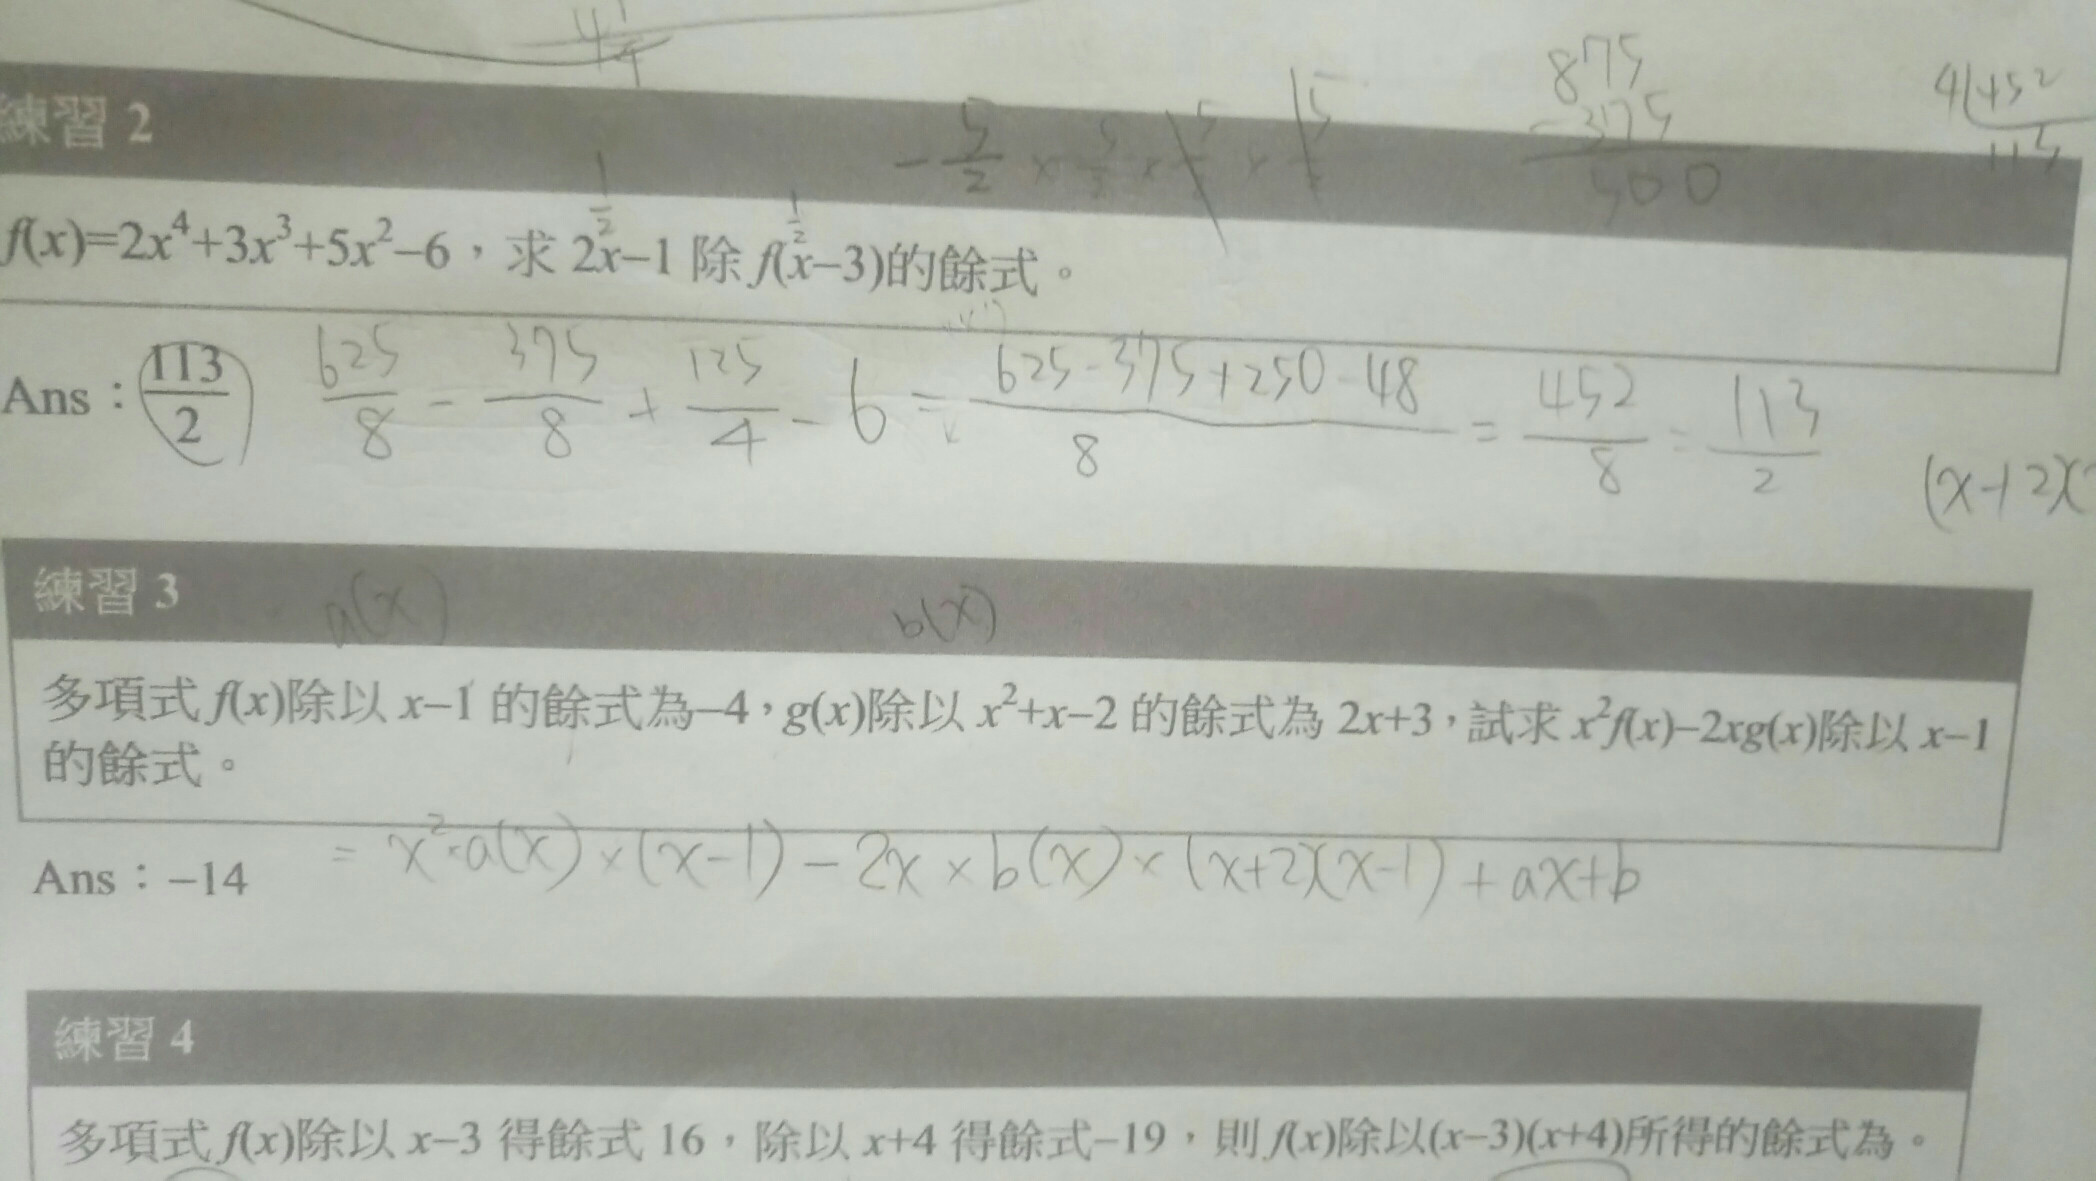 875
-375
500
4 452
113
練習 2
-5/2 × 5/2 ×
1/2
1/2
f(x)=2x⁴+3x³+5x²–6，求 2x–1 除 f(x–3)的餘式。
Ans：113/2 625/8 - 375/8 + 125/4 - 6 = 625-375+250-48/8 = 452/8 = 113/2
(x+2)(
練習 3
a(x) b(x)
多項式 f(x)除以 x–1 的餘式為–4，g(x)除以 x²+x–2 的餘式為 2x+3，試求 x²f(x)–2xg(x)除以 x–1
的餘式。
Ans：–14 = x²·a(x)×(x-1)-2x×b(x)×(x+2)(x-1)+ax+b
練習 4
多項式 f(x)除以 x–3 得餘式 16，除以 x+4 得餘式–19，則 f(x)除以(x–3)(x+4)所得的餘式為。